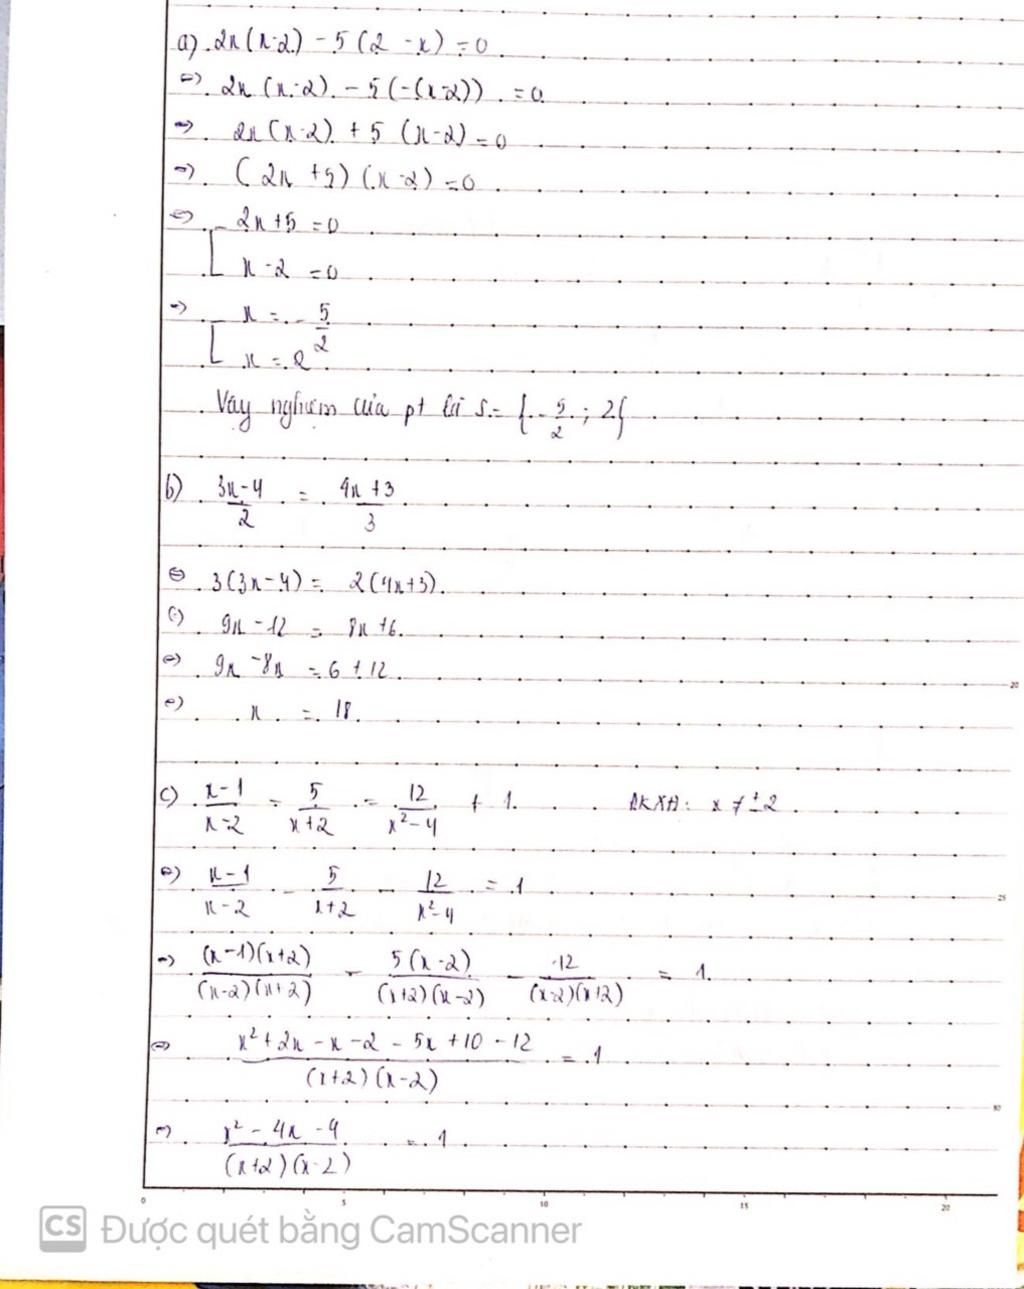 a) 2x(x-2) - 5(2 - x) = 0
<=> 2x(x-2) - 5(-(x-2)) = 0
=> 2x(x-2) + 5(x-2) = 0
=> (2x+5)(x-2) = 0
<=> [ 2x+5 = 0
x-2 = 0
=> [ x = -5/2
x = 2
Vậy nghiệm của pt là S = {-5/2 ; 2}
b) (3x-4)/2 = (4x+3)/3
<=> 3(3x-4) = 2(4x+3)
<=> 9x - 12 = 8x + 6
<=> 9x - 8x = 6 + 12
<=> x = 18
c) (x-1)/(x-2) - 5/(x+2) = 12/(x²-4) + 1 ĐKXĐ: x ≠ ±2
<=> (x-1)/(x-2) - 5/(x+2) - 12/(x²-4) = 1
=> (x-1)(x+2)/(x-2)(x+2) - 5(x-2)/(x+2)(x-2) - 12/(x-2)(x+2) = 1
<=> (x²+2x-x-2-5x+10-12)/(x+2)(x-2) = 1
=> (x²-4x-4)/(x+2)(x-2) = 1
20
25
30
0 5 10 15 20
CS Được quét bằng CamScanner